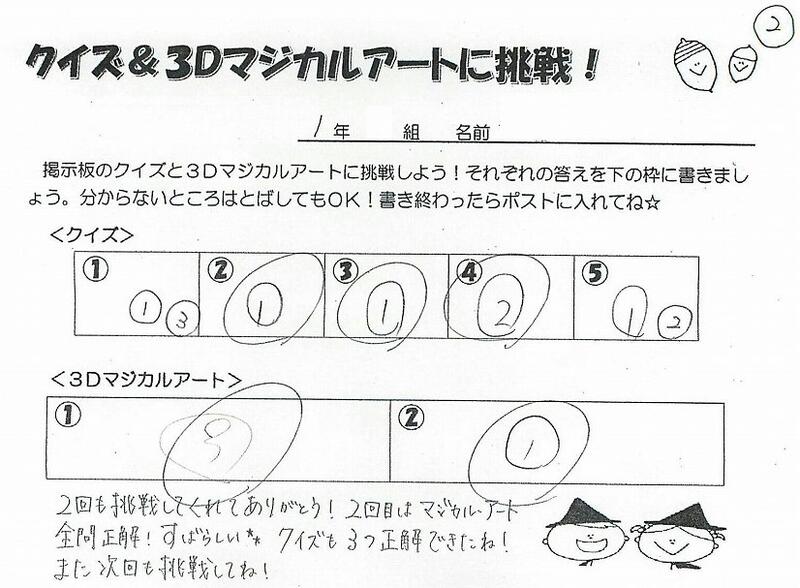 ②
クイズ＆３Dマジカルアートに挑戦！
1年　組　名前
掲示板のクイズと３Dマジカルアートに挑戦しよう！それぞれの答えを下の枠に書きまし
ょう。分からないところはとばしてもOK！書き終わったらポストに入れてね☆
＜クイズ＞
① ① ③ ② ① ③ ① ④ ② ⑤ ① ②
＜３Dマジカルアート＞
① ③ ② ①
2回も挑戦してくれてありがとう！2回目はマジカルアート
全問正解！すばらしい** クイズも3つ正解できたね！
また次回も挑戦してね！